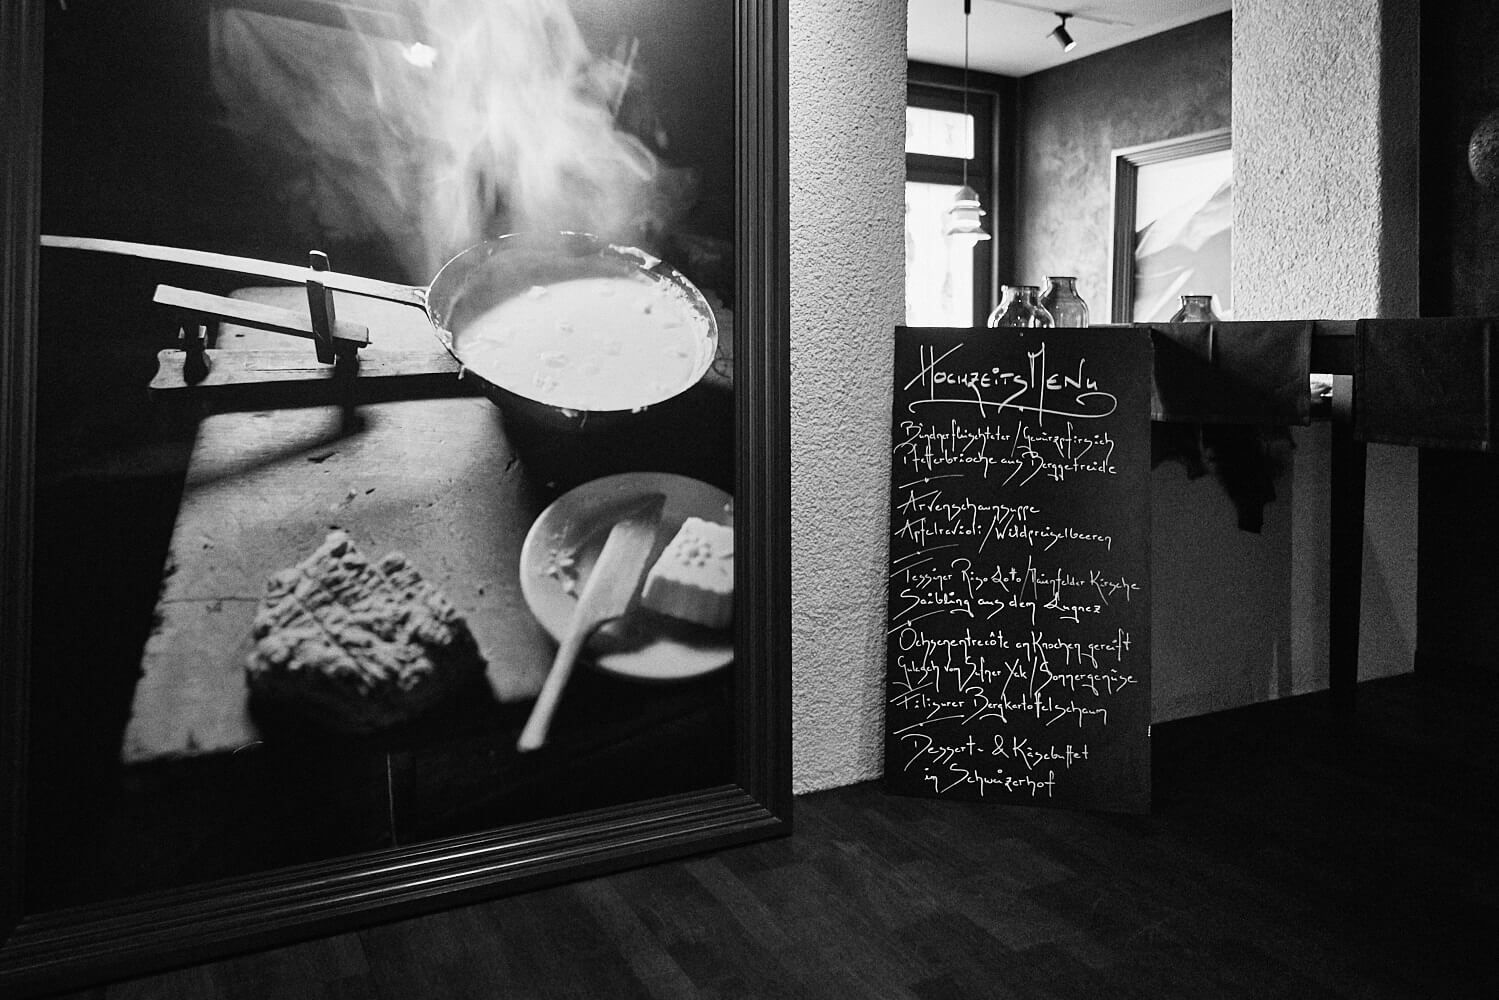 HochzeitsMenu
Bündnerfleischtatar / Gewürzpfirsich
Pfefferbrioche aus Berggetreide
Arvenschaumsuppe
Apfelravioli / Wildpreiselbeeren
Tessiner Riso Lotto / Maienfelder Kirsche
Saibling aus dem Lugnez
Ochsenentrecôte am Knochen gereift
Gulasch vom Valser Yak / Sommergemüse
Filisurer Bergkartoffelschaum
Dessert- & Käsebuffet
im Schweizerhof